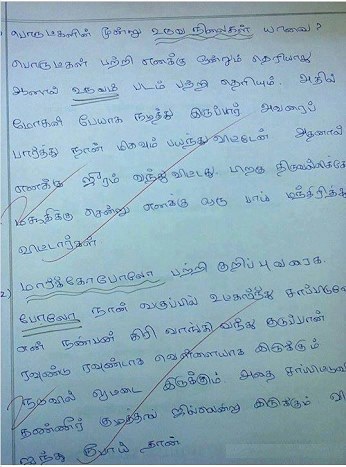 பொருட்களின் மூன்று உருவ நிலைகள் யாவை?
பொருட்கள் பற்றி எனக்கு ஒன்றும் தெரியாது
ஆனால் உருவம் படம் பற்றி தெரியும். அதில்
மோகனி பேயாக நடித்து இருப்பார் அவரைப்
பார்த்து நான் மிகவும் பயந்துவிட்டேன் அதனால்
எனக்கு ஜீரம் வந்துவிட்டது. பிறகு
மசூதிக்கு சென்று எனக்கு ஒரு பாய் மந்திரித்து
விட்டார்கள்
2) மார்க்கோபோலோ பற்றி குறிப்பு வரைக.
போலோ நான் வகுப்பில் உட்கார்ந்து
என் நண்பன் கிரி வாங்கி வந்து தருப்பான்
ரவுண்டு ரவுண்டாக வெள்ளையாக இருக்கும்
நடுவில் ஓட்டை இருக்கும். அதை
தண்ணீர் குடித்தா ஜில்லென்று இருக்கும்
ஐந்து ரூபாய் தான்